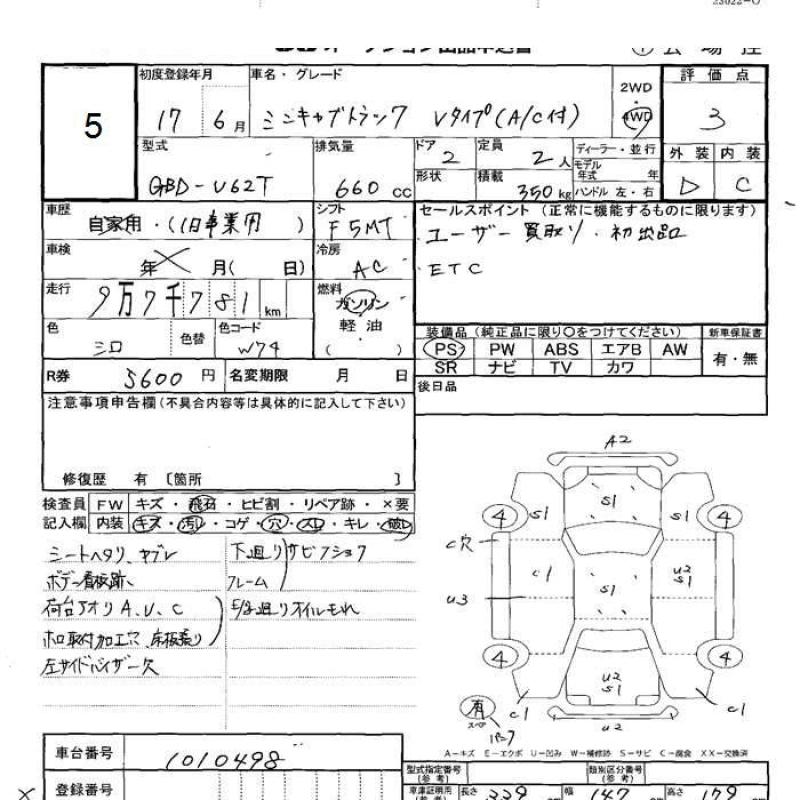 23022-0
初度登録年月 車名・グレード 2WD・4WD 評価点
5 17 6月 ミニキャブトラック Vタイプ(A/C付) 3
型式 排気量 ドア 定員 ディーラー・並行 外装 内装
GBD-U62T 660cc 2 2人 モデル年式 年 D C
形状 積載 350kg ハンドル 左・右
車歴 シフト セールスポイント(正常に機能するものに限ります)
自家用・(旧事業用) F5MT ユーザー買取り・初出品
車検 冷房 ETC
年 月( 日) AC
走行 燃料
9万7千781km ガソリン
軽油
( )
色 色替 色コード 装備品(純正品に限り○をつけてください) 新車保証書
シロ W74 PS PW ABS エアB AW 有・無
SR ナビ TV カワ
R券 5600円 名変期限 月 日 後日品
注意事項申告欄(不具合内容等は具体的に記入して下さい)
修復歴 有 〔箇所 〕
検査員記入欄 FW キズ・飛石・ヒビ割・リペア跡・×要
内装 キズ・汚レ・コゲ・穴・スレ・キレ・破レ
シートヘタリ、ヤブレ 下廻り サビフショク
ボデー看板跡、 フレーム
荷台アオリA、U、C E/g廻りオイルモレ
ホロ取付加工穴、床板張り
左サイドバイザー欠
A2
S1
4 S1 S1 4
C穴
C1 S1 U2 S1
U3
4 4
U2 S1
有 スペア パンク
C1 U2 C1
A-キズ E-エクボ U-凹み W-補修跡 S-サビ C-腐食 XX-交換済
車台番号 1010498
型式指定番号(参考) 類別区分番号(参考)
登録番号
車庫証明用(参考) 長さ 339 幅 147 高さ 179